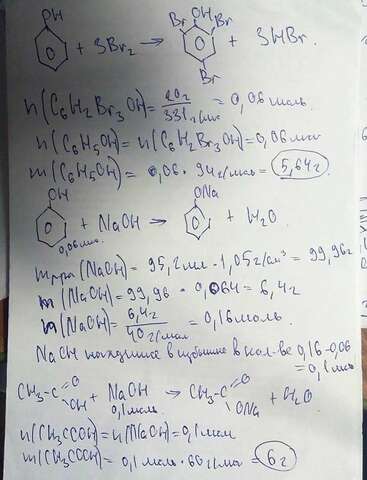 OH OH
Br Br
+ 3Br₂ → + 3HBr.
Br
n(C₆H₂Br₃OH) = 20г / 331г/моль = 0,06 моль.
n(C₆H₅OH) = n(C₆H₂Br₃OH) = 0,06 моль
m(C₆H₅OH) = 0,06 · 94г/моль = 5,64г
OH ONa
+ NaOH → + H₂O.
0,06 моль.
mр-ра(NaOH) = 95,2 мл · 1,05г/см³ = 99,96г
m(NaOH) = 99,96 · 0,064 = 6,4г
n(NaOH) = 6,4г / 40г/моль = 0,16 моль.
NaOH в избытке в кол-ве 0,16-0,06
= 0,1 моль
CH₃-C O OH + NaOH → CH₃-C O ONa + H₂O
0,1 моль
n(CH₃COOH) = n(NaOH) = 0,1 моль
m(CH₃COOH) = 0,1 моль · 60г/моль = 6г